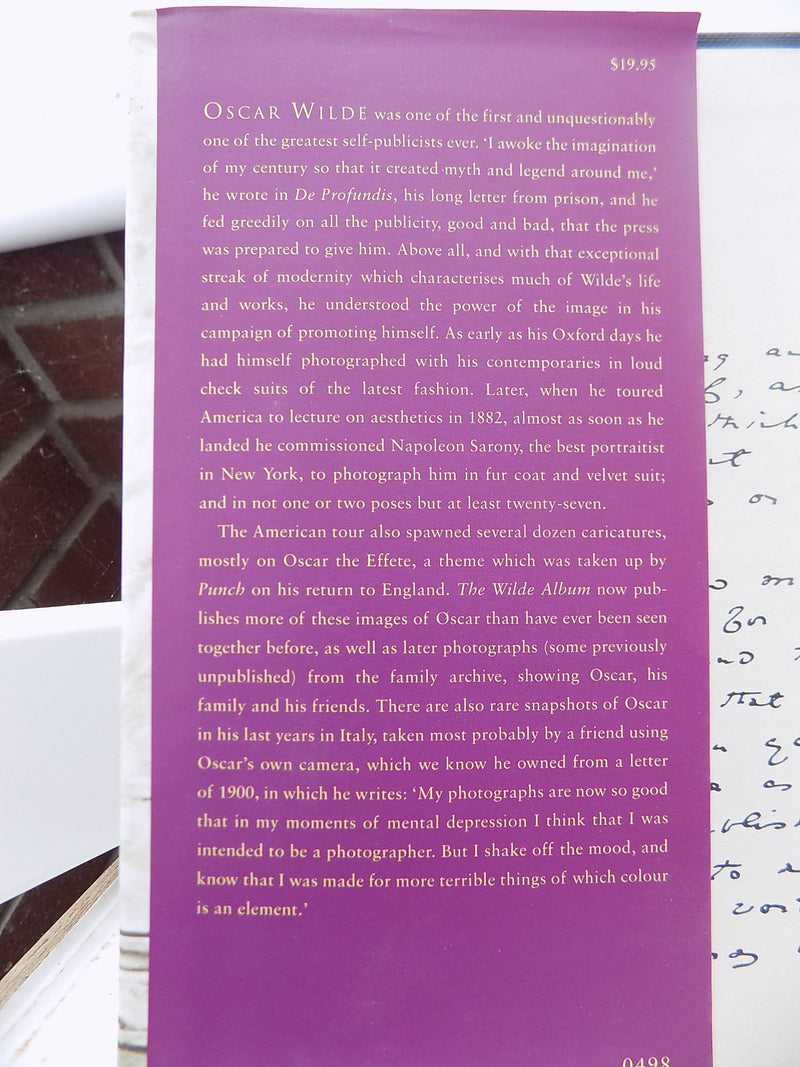 $19.95
OSCAR WILDE was one of the first and unquestionably
one of the greatest self-publicists ever. ‘I awoke the imagination
of my century so that it created myth and legend around me,’
he wrote in De Profundis, his long letter from prison, and he
fed greedily on all the publicity, good and bad, that the press
was prepared to give him. Above all, and with that exceptional
streak of modernity which characterises much of Wilde’s life
and works, he understood the power of the image in his
campaign of promoting himself. As early as his Oxford days he
had himself photographed with his contemporaries in loud
check suits of the latest fashion. Later, when he toured
America to lecture on aesthetics in 1882, almost as soon as he
landed he commissioned Napoleon Sarony, the best portraitist
in New York, to photograph him in fur coat and velvet suit;
and in not one or two poses but at least twenty-seven.
The American tour also spawned several dozen caricatures,
mostly on Oscar the Effete, a theme which was taken up by
Punch on his return to England. The Wilde Album now pub-
lishes more of these images of Oscar than have ever been seen
together before, as well as later photographs (some previously
unpublished) from the family archive, showing Oscar, his
family and his friends. There are also rare snapshots of Oscar
in his last years in Italy, taken most probably by a friend using
Oscar’s own camera, which we know he owned from a letter
of 1900, in which he writes: ‘My photographs are now so good
that in my moments of mental depression I think that I was
intended to be a photographer. But I shake off the mood, and
know that I was made for more terrible things of which colour
is an element.’
0498
that
to